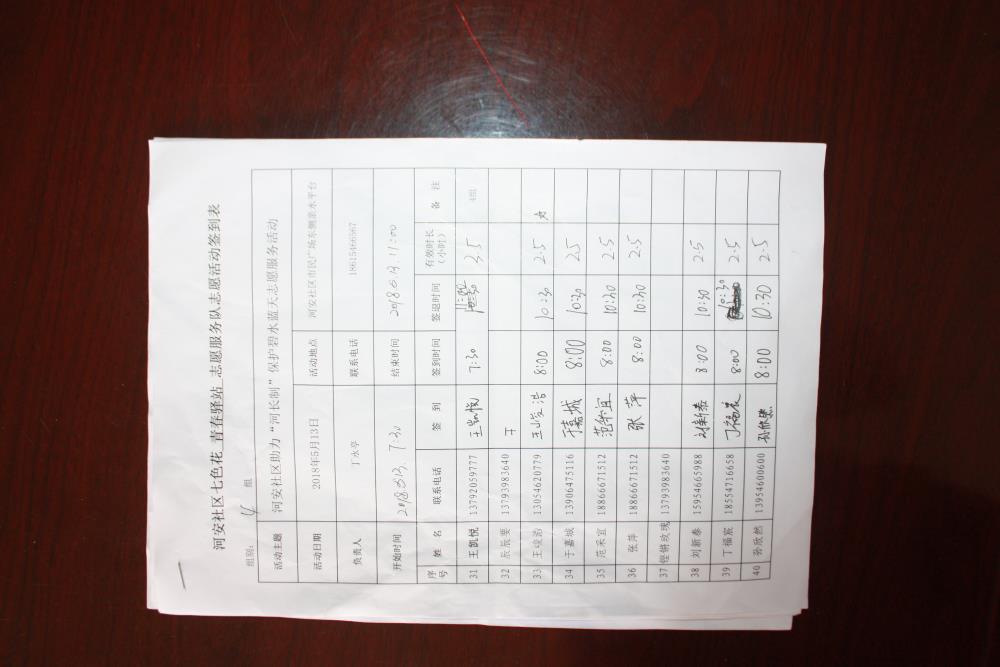 河安社区七色花 青春驿站 志愿服务队志愿活动签到表
组别: 4 组
活动主题 河安社区助力“河长制”保护碧水蓝天志愿服务活动
活动日期 2018年5月13日 活动地点 河安社区市民广场东侧亲水平台
负责人 丁永亭 联系电话 18615466567
开始时间 2018.5.13. 7:30 结束时间 2018.5.13. 11:00
序号 姓 名 联系电话 签 到 签到时间 签退时间 有效时长(小时) 备 注
31 王凯悦 13792059777 王凯悦 7:30 3.5 4组
32 辰辰要 13793983640
33 王峻浩 13054620779 王峻浩 8:00 10:30 2.5
34 于嘉城 13906475116 于嘉城 8:00 10:30 2.5
35 范荣宜 18866671512 范荣宜 8:00 10:30 2.5
36 张萍 18866671512 张萍 8:00 10:30 2.5
37 铿锵玫瑰 13793983640
38 刘新泰 15954665988 刘新泰 8:00 10:30 2.5
39 丁福宸 18554716658 丁福宸 8:00 10:30 2.5
40 孙欣然 13954600600 孙欣然 8:00 10:30 2.5